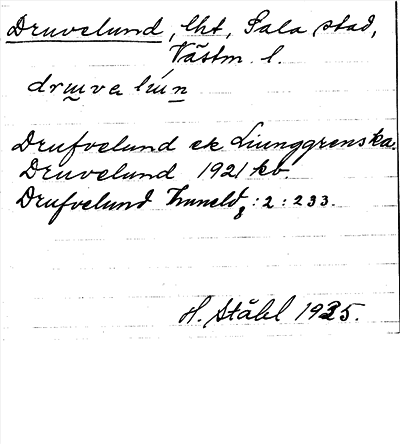 Druvelund, lht, Sala stad,
Västm. l.
druva lún
Drufvelund ek Ljunggrenska.
Druvelund 1921 kb.
Drufvelund Tuneld 8:2:233.
H. Ståhl 1925.